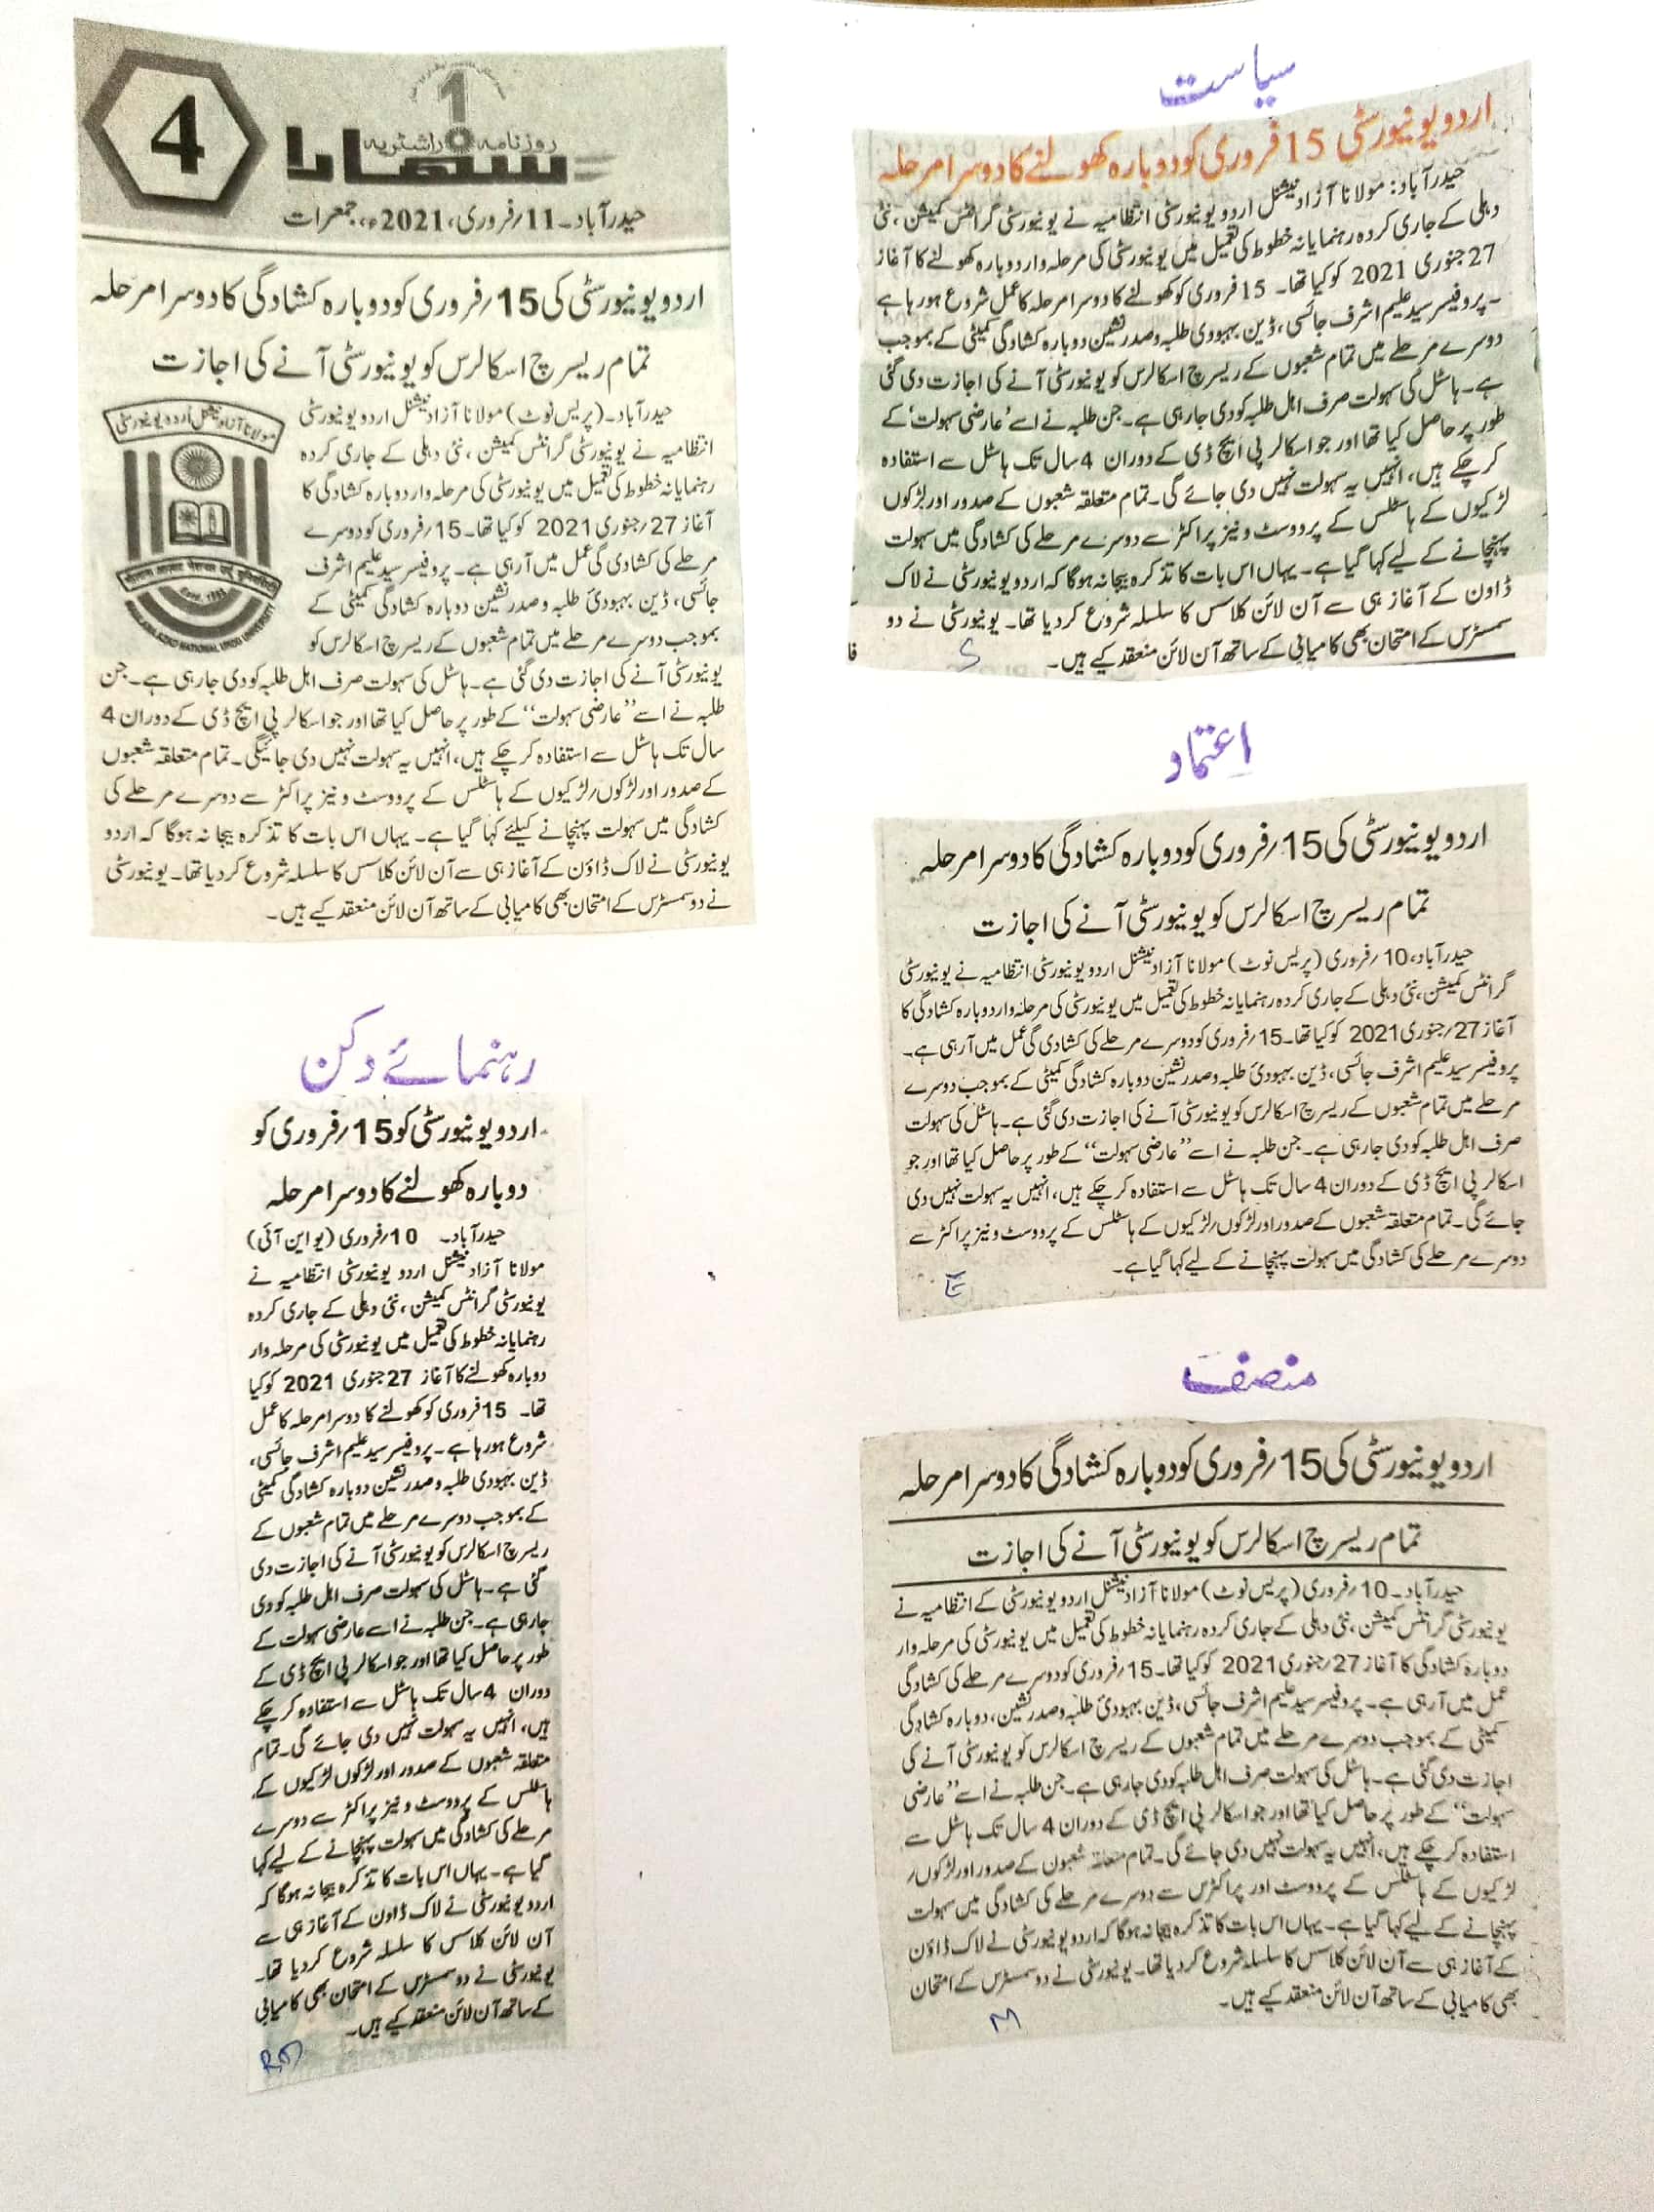 4
1
روزنامہ راشٹریہ
سہارا
حیدرآباد۔11؍فروری، 2021ء، جمعرات
اردو یونیورسٹی کی 15؍فروری کو دوبارہ کشادگی کا دوسرا مرحلہ
تمام ریسرچ اسکالرس کو یونیورسٹی آنے کی اجازت
مولانا آزاد نیشنل اردو یونیورسٹی
MAULANA AZAD NATIONAL URDU UNIVERSITY
حیدرآباد۔(پریس نوٹ) مولانا آزاد نیشنل اردو یونیورسٹی
انتظامیہ نے یونیورسٹی گرانٹس کمیشن، نئی دہلی کے جاری کردہ
رہنمایانہ خطوط کی تعمیل میں یونیورسٹی کی مرحلہ وار دوبارہ کشادگی کا
آغاز 27؍جنوری 2021 کو کیا تھا۔15؍فروری کو دوسرے
مرحلے کی کشادی گی عمل میں آرہی ہے۔ پروفیسر سید علیم اشرف
جائسی، ڈین بہبودیٔ طلبہ و صدر نشین دوبارہ کشادگی کمیٹی کے
بموجب دوسرے مرحلے میں تمام شعبوں کے ریسرچ اسکالرس کو
یونیورسٹی آنے کی اجازت دی گئی ہے۔ ہاسٹل کی سہولت صرف اہل طلبہ کو دی جارہی ہے۔ جن
طلبہ نے اسے ”عارضی سہولت“ کے طور پر حاصل کیا تھا اور جو اسکالر پی ایچ ڈی کے دوران 4
سال تک ہاسٹل سے استفادہ کرچکے ہیں، انہیں یہ سہولت نہیں دی جائیگی۔ تمام متعلقہ شعبوں
کے صدور اور لڑکوں؍لڑکیوں کے ہاسٹلس کے پرووسٹ و نیز پراکٹر سے دوسرے مرحلے کی
کشادگی میں سہولت پہنچانے کیلئے کہا گیا ہے۔ یہاں اس بات کا تذکرہ بیجا نہ ہوگا کہ اردو
یونیورسٹی نے لاک ڈاؤن کے آغاز ہی سے آن لائن کلاسس کا سلسلہ شروع کردیا تھا۔ یونیورسٹی
نے دو سمسٹرس کے امتحان بھی کامیابی کے ساتھ آن لائن منعقد کیے ہیں۔
رہنمائے دکن
اردو یونیورسٹی کو 15؍فروری کو
دوبارہ کھولنے کا دوسرا مرحلہ
حیدرآباد۔ 10؍فروری (یو این آئی)
مولانا آزاد نیشنل اردو یونیورسٹی انتظامیہ نے
یونیورسٹی گرانٹس کمیشن، نئی دہلی کے جاری کردہ
رہنمایانہ خطوط کی تعمیل میں یونیورسٹی کی مرحلہ وار
دوبارہ کھولنے کا آغاز 27 جنوری 2021 کو کیا
تھا۔ 15 فروری کو کھولنے کا دوسرا مرحلہ کا عمل
شروع ہورہا ہے۔ پروفیسر سید علیم اشرف جائسی،
ڈین بہبودی طلبہ و صدر نشین دوبارہ کشادگی کمیٹی
کے بموجب دوسرے مرحلے میں تمام شعبوں کے
ریسرچ اسکالرس کو یونیورسٹی آنے کی اجازت دی
گئی ہے۔ ہاسٹل کی سہولت صرف اہل طلبہ کو دی
جارہی ہے۔ جن طلبہ نے اسے عارضی سہولت کے
طور پر حاصل کیا تھا اور جو اسکالر پی ایچ ڈی کے
دوران 4 سال تک ہاسٹل سے استفادہ کرچکے
ہیں، انہیں یہ سہولت نہیں دی جائے گی۔ تمام
متعلقہ شعبوں کے صدور اور لڑکوں لڑکیوں کے
ہاسٹلس کے پرووسٹ و نیز پراکٹر سے دوسرے
مرحلے کی کشادگی میں سہولت پہنچانے کے لیے کہا
گیا ہے۔ یہاں اس بات کا تذکرہ بیجا نہ ہوگا کہ
اردو یونیورسٹی نے لاک ڈاون کے آغاز ہی سے
آن لائن کلاسس کا سلسلہ شروع کردیا تھا۔
یونیورسٹی نے دو سمسٹرس کے امتحان بھی کامیابی
کے ساتھ آن لائن منعقد کیے ہیں۔
سیاست
اردو یونیورسٹی 15 فروری کو دوبارہ کھولنے کا دوسرا مرحلہ
حیدرآباد: مولانا آزاد نیشنل اردو یونیورسٹی انتظامیہ نے یونیورسٹی گرانٹس کمیشن، نئی
دہلی کے جاری کردہ رہنمایانہ خطوط کی تعمیل میں یونیورسٹی کی مرحلہ وار دوبارہ کھولنے کا آغاز
27 جنوری 2021 کو کیا تھا۔ 15 فروری کو کھولنے کا دوسرا مرحلہ کا عمل شروع ہورہا ہے
۔ پروفیسر سید علیم اشرف جائسی، ڈین بہبودی طلبہ و صدر نشین دوبارہ کشادگی کمیٹی کے بموجب
دوسرے مرحلے میں تمام شعبوں کے ریسرچ اسکالرس کو یونیورسٹی آنے کی اجازت دی گئی
ہے۔ ہاسٹل کی سہولت صرف اہل طلبہ کو دی جارہی ہے۔ جن طلبہ نے اسے ’عارضی سہولت‘ کے
طور پر حاصل کیا تھا اور جو اسکالر پی ایچ ڈی کے دوران 4 سال تک ہاسٹل سے استفادہ
کرچکے ہیں، انہیں یہ سہولت نہیں دی جائے گی۔ تمام متعلقہ شعبوں کے صدور اور لڑکوں
لڑکیوں کے ہاسٹلس کے پرووسٹ و نیز پراکٹر سے دوسرے مرحلے کی کشادگی میں سہولت
پہنچانے کے لیے کہا گیا ہے۔ یہاں اس بات کا تذکرہ بیجا نہ ہوگا کہ اردو یونیورسٹی نے لاک
ڈاون کے آغاز ہی سے آن لائن کلاسس کا سلسلہ شروع کردیا تھا۔ یونیورسٹی نے دو
سمسٹرس کے امتحان بھی کامیابی کے ساتھ آن لائن منعقد کیے ہیں۔
S
اعتماد
اردو یونیورسٹی کی 15؍فروری کو دوبارہ کشادگی کا دوسرا مرحلہ
تمام ریسرچ اسکالرس کو یونیورسٹی آنے کی اجازت
حیدرآباد، 10؍فروری (پریس نوٹ) مولانا آزاد نیشنل اردو یونیورسٹی انتظامیہ نے یونیورسٹی
گرانٹس کمیشن، نئی دہلی کے جاری کردہ رہنمایانہ خطوط کی تعمیل میں یونیورسٹی کی مرحلہ وار دوبارہ کشادگی کا
آغاز 27؍جنوری 2021 کو کیا تھا۔15؍فروری کو دوسرے مرحلے کی کشادی گی عمل میں آرہی ہے۔
پروفیسر سید علیم اشرف جائسی، ڈین بہبودیٔ طلبہ و صدر نشین دوبارہ کشادگی کمیٹی کے بموجب دوسرے
مرحلے میں تمام شعبوں کے ریسرچ اسکالرس کو یونیورسٹی آنے کی اجازت دی گئی ہے۔ ہاسٹل کی سہولت
صرف اہل طلبہ کو دی جارہی ہے۔ جن طلبہ نے اسے ”عارضی سہولت“ کے طور پر حاصل کیا تھا اور جو
اسکالر پی ایچ ڈی کے دوران 4 سال تک ہاسٹل سے استفادہ کرچکے ہیں، انہیں یہ سہولت نہیں دی
جائے گی۔ تمام متعلقہ شعبوں کے صدور اور لڑکوں؍لڑکیوں کے ہاسٹلس کے پرووسٹ و نیز پراکٹر سے
دوسرے مرحلے کی کشادگی میں سہولت پہنچانے کے لیے کہا گیا ہے۔
E
منصف
اردو یونیورسٹی کی 15؍فروری کو دوبارہ کشادگی کا دوسرا مرحلہ
تمام ریسرچ اسکالرس کو یونیورسٹی آنے کی اجازت
حیدرآباد۔ 10؍فروری (پریس نوٹ) مولانا آزاد نیشنل اردو یونیورسٹی کے انتظامیہ نے
یونیورسٹی گرانٹس کمیشن، نئی دہلی کے جاری کردہ رہنمایانہ خطوط کی تعمیل میں یونیورسٹی کی مرحلہ وار
دوبارہ کشادگی کا آغاز 27؍جنوری 2021 کو کیا تھا۔15؍فروری کو دوسرے مرحلے کی کشادگی
عمل میں آرہی ہے۔ پروفیسر سید علیم اشرف جائسی، ڈین بہبودیٔ طلبہ و صدر نشین، دوبارہ کشادگی
کمیٹی کے بموجب دوسرے مرحلے میں تمام شعبوں کے ریسرچ اسکالرس کو یونیورسٹی آنے کی
اجازت دی گئی ہے۔ ہاسٹل کی سہولت صرف اہل طلبہ کو دی جارہی ہے۔ جن طلبہ نے اسے ”عارضی
سہولت“ کے طور پر حاصل کیا تھا اور جو اسکالر پی ایچ ڈی کے دوران 4 سال تک ہاسٹل سے
استفادہ کرچکے ہیں، انہیں یہ سہولت نہیں دی جائے گی۔ تمام متعلقہ شعبوں کے صدور اور لڑکوں؍
لڑکیوں کے ہاسٹلس کے پرووسٹ اور پراکٹرس سے دوسرے مرحلے کی کشادگی میں سہولت
پہنچانے کے لیے کہا گیا ہے۔ یہاں اس بات کا تذکرہ بیجا نہ ہوگا کہ اردو یونیورسٹی نے لاک ڈاؤن
کے آغاز ہی سے آن لائن کلاسس کا سلسلہ شروع کردیا تھا۔ یونیورسٹی نے دو سمسٹرس کے امتحان
بھی کامیابی کے ساتھ آن لائن منعقد کیے ہیں۔
M